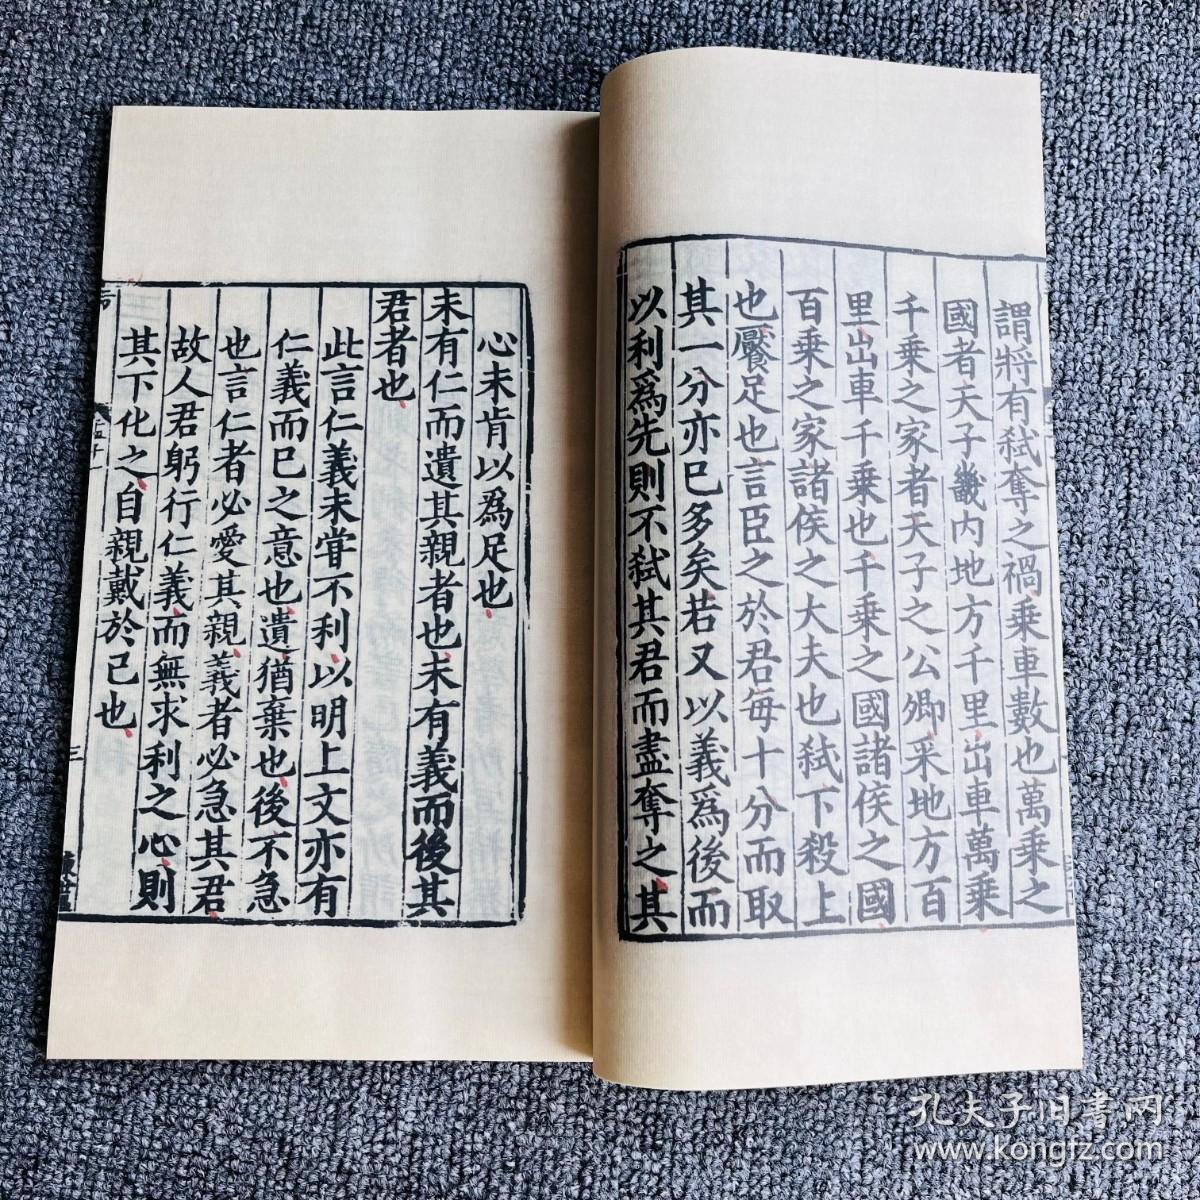 謂將有弒奪之禍乗車數也萬乗之
國者天子畿内地方千里出車萬乗
千乗之家者天子之公卿采地方百
里出車千乗也千乗之國諸侯之國
百乗之家諸侯之大夫也弒下殺上
也饜足也言臣之於君毎十分而取
其一分亦已多矣若又以義爲後而
以利爲先則不弒其君而盡奪之其
心未肯以爲足也
未有仁而遺其親者也未有義而後其
君者也
此言仁義未甞不利以明上文亦有
仁義而已之意也遺猶棄也後不急
也言仁者必愛其親義者必急其君
故人君躬行仁義而無求利之心則
其下化之自親戴於已也
三
孔夫子旧书网
www.kongfz.com